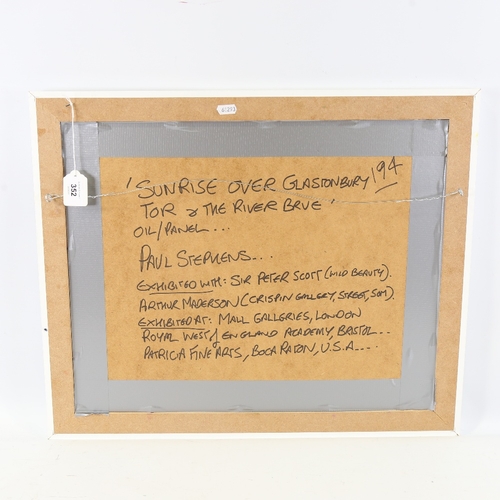 'SUNRISE OVER GLASTONBURY 194
TOR & THE RIVER BRUE'
OIL/PANEL...
PAUL STEPHENS...
EXHIBITED WITH: SIR PETER SCOTT (WILD BEAUTY).
ARTHUR MADERSON (CRISPIN GALLERY, STREET, SOM).
EXHIBITED AT: MALL GALLERIES, LONDON
ROYAL WEST of ENGLAND ACADEMY, BRISTOL...
PATRICIA FINE ARTS, BOCA RATON, U.S.A....
352